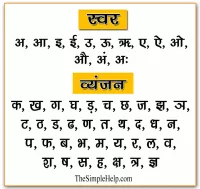 स्वर
अ, आ, इ, ई, उ, ऊ, ऋ, ए, ऐ, ओ,
औ, अं, अः
व्यंजन
क, ख, ग, घ, ङ, च, छ, ज, झ, ञ
ट, ठ, ड, ढ, ण, त, थ, द, ध, न,
प, फ, ब, भ, म, य, र, ल, व,
श, ष, स, ह, क्ष, त्र, ज्ञ
TheSimpleHelp.com